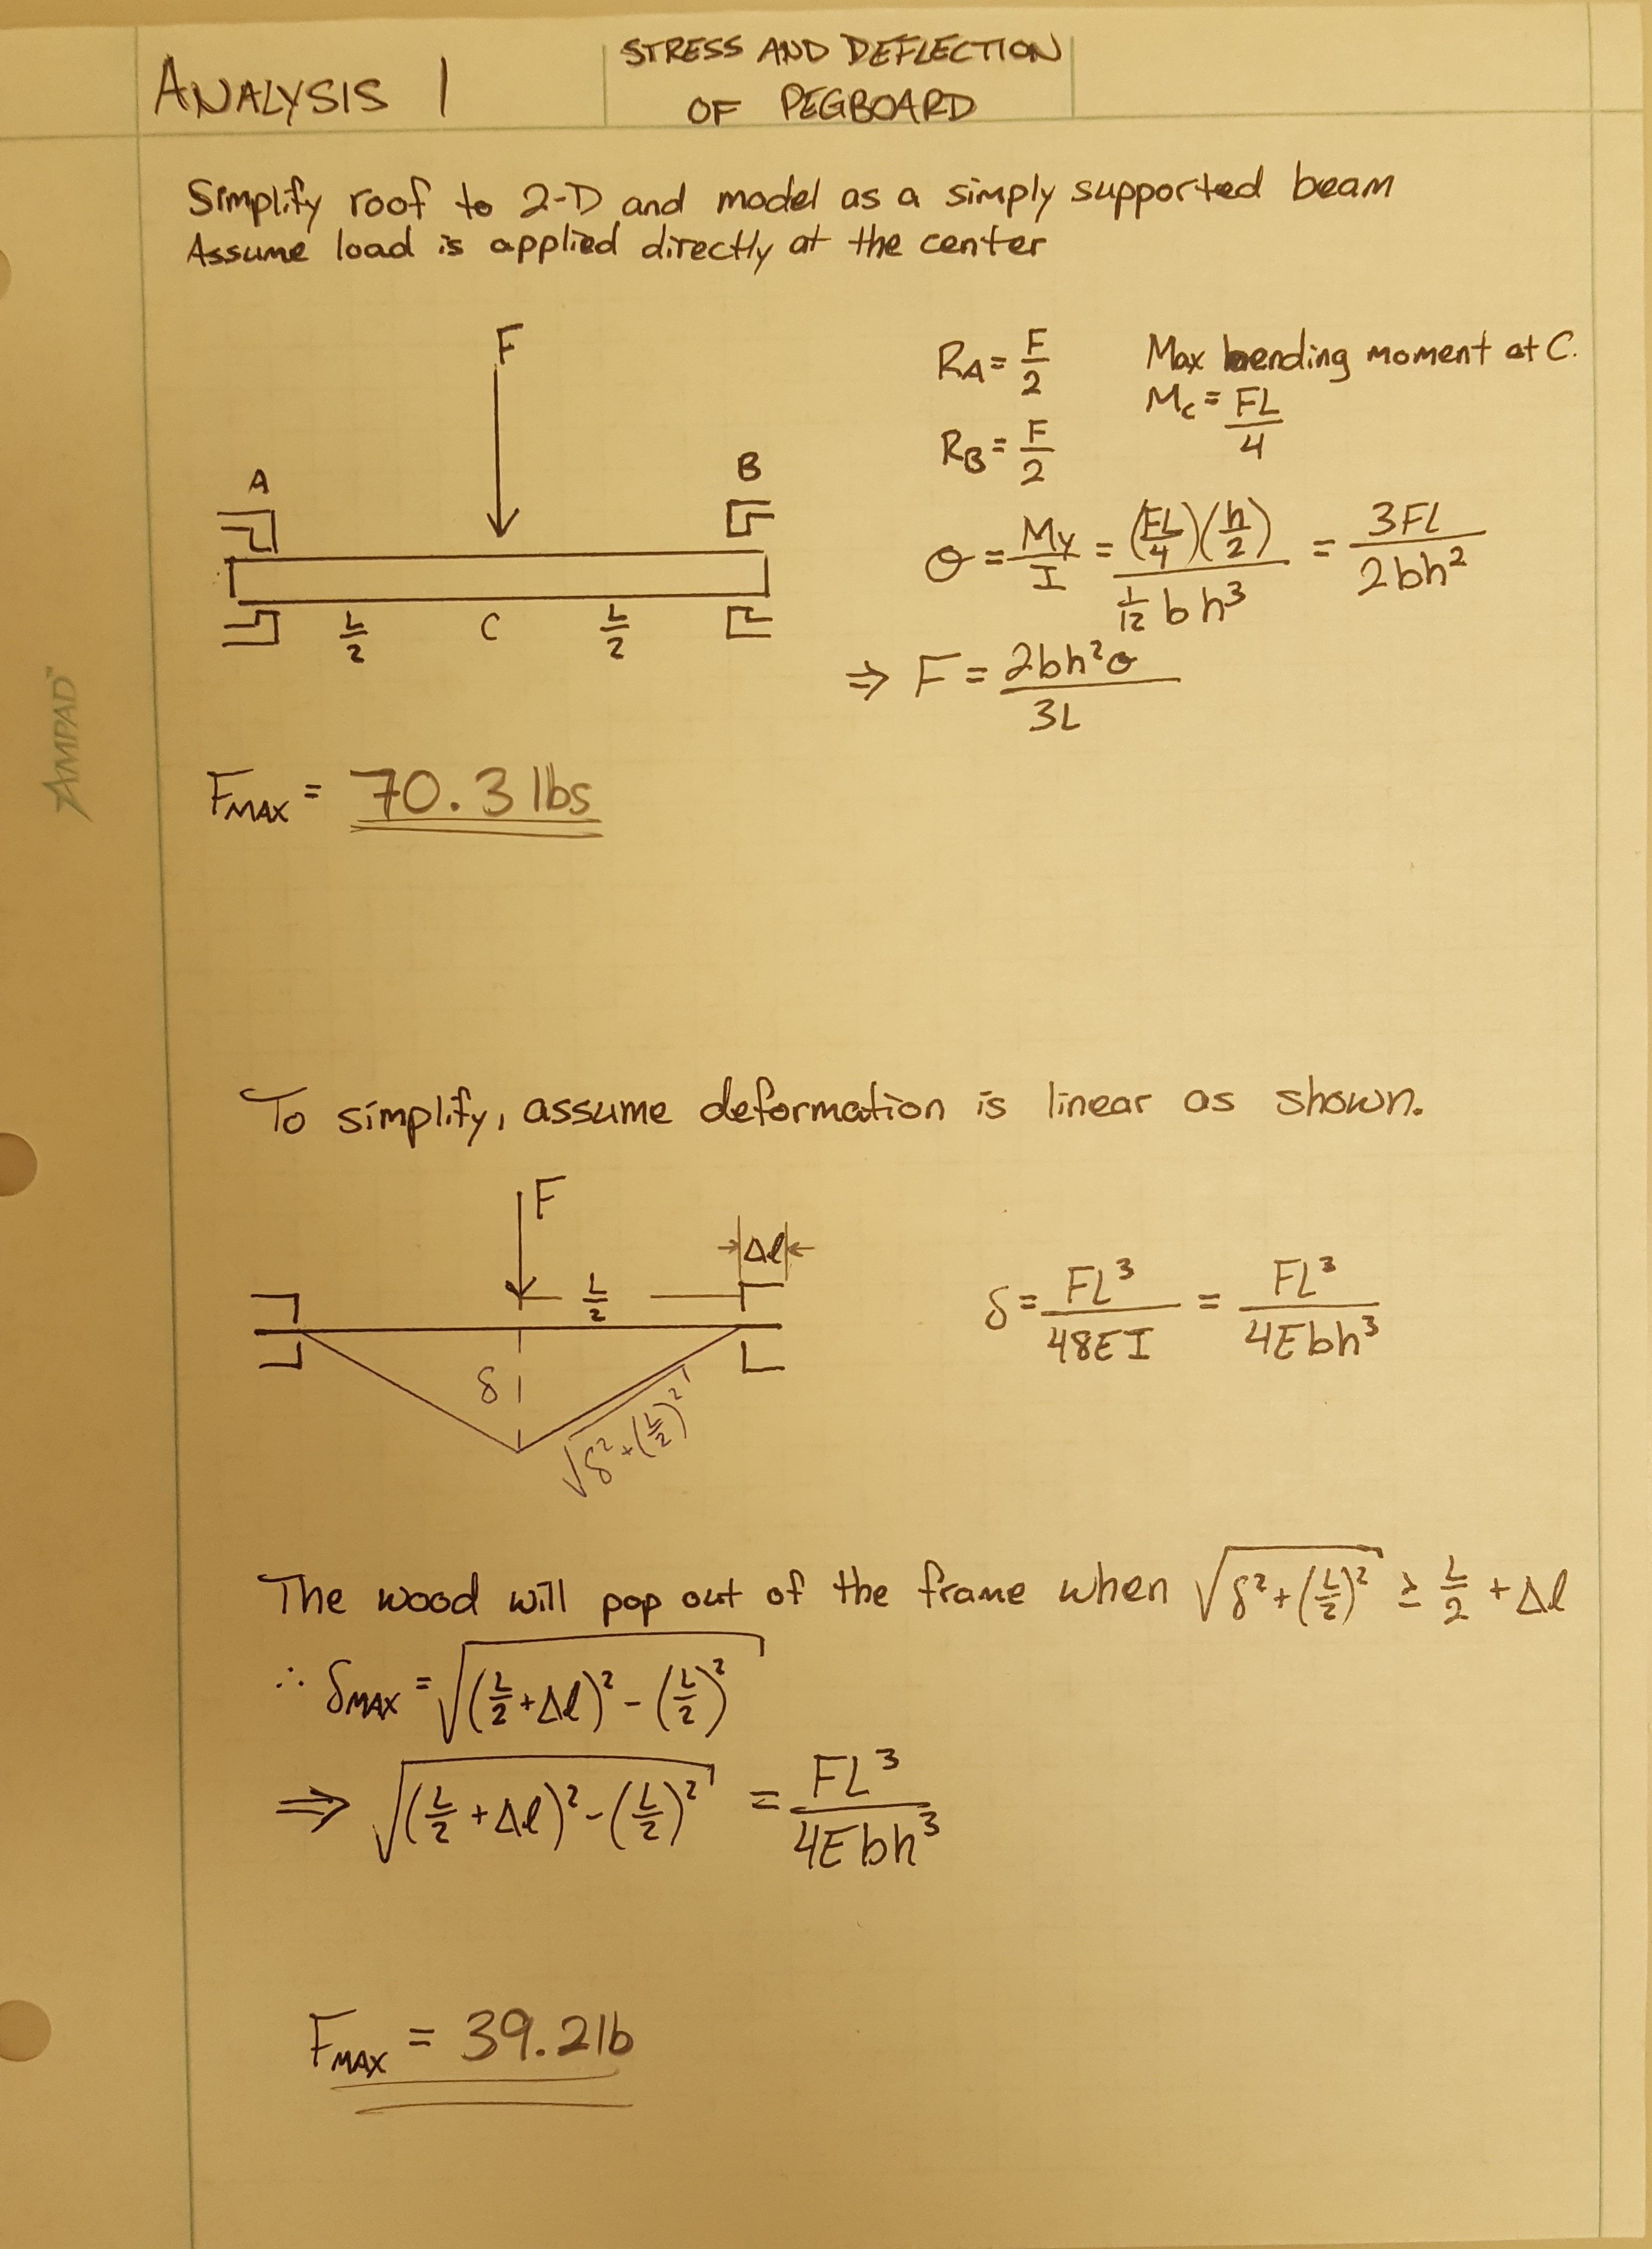 ANALYSIS 1
STRESS AND DEFLECTION
OF PEGBOARD
Simplify roof to 2-D and model as a simply supported beam
Assume load is applied directly at the center
F
A
B
L/2
C
L/2
R_A = F/2
R_B = F/2
Max bending moment at C.
M_c = FL/4
σ = My/I = (FL/4)(h/2) / (1/12 bh³) = 3FL/2bh²
⇒ F = 2bh²σ/3L
F_MAX = 70.3 lbs
AMPAD™
To simplify, assume deformation is linear as shown.
F
Δl
L/2
δ
√(δ² + (L/2)²)
δ = FL³/48EI = FL³/4Ebh³
The wood will pop out of the frame when √(δ² + (L/2)²) ≥ L/2 + Δl
∴ δ_MAX = √((L/2 + Δl)² - (L/2)²)
⇒ √((L/2 + Δl)² - (L/2)²) = FL³/4Ebh³
F_MAX = 39.2 lb